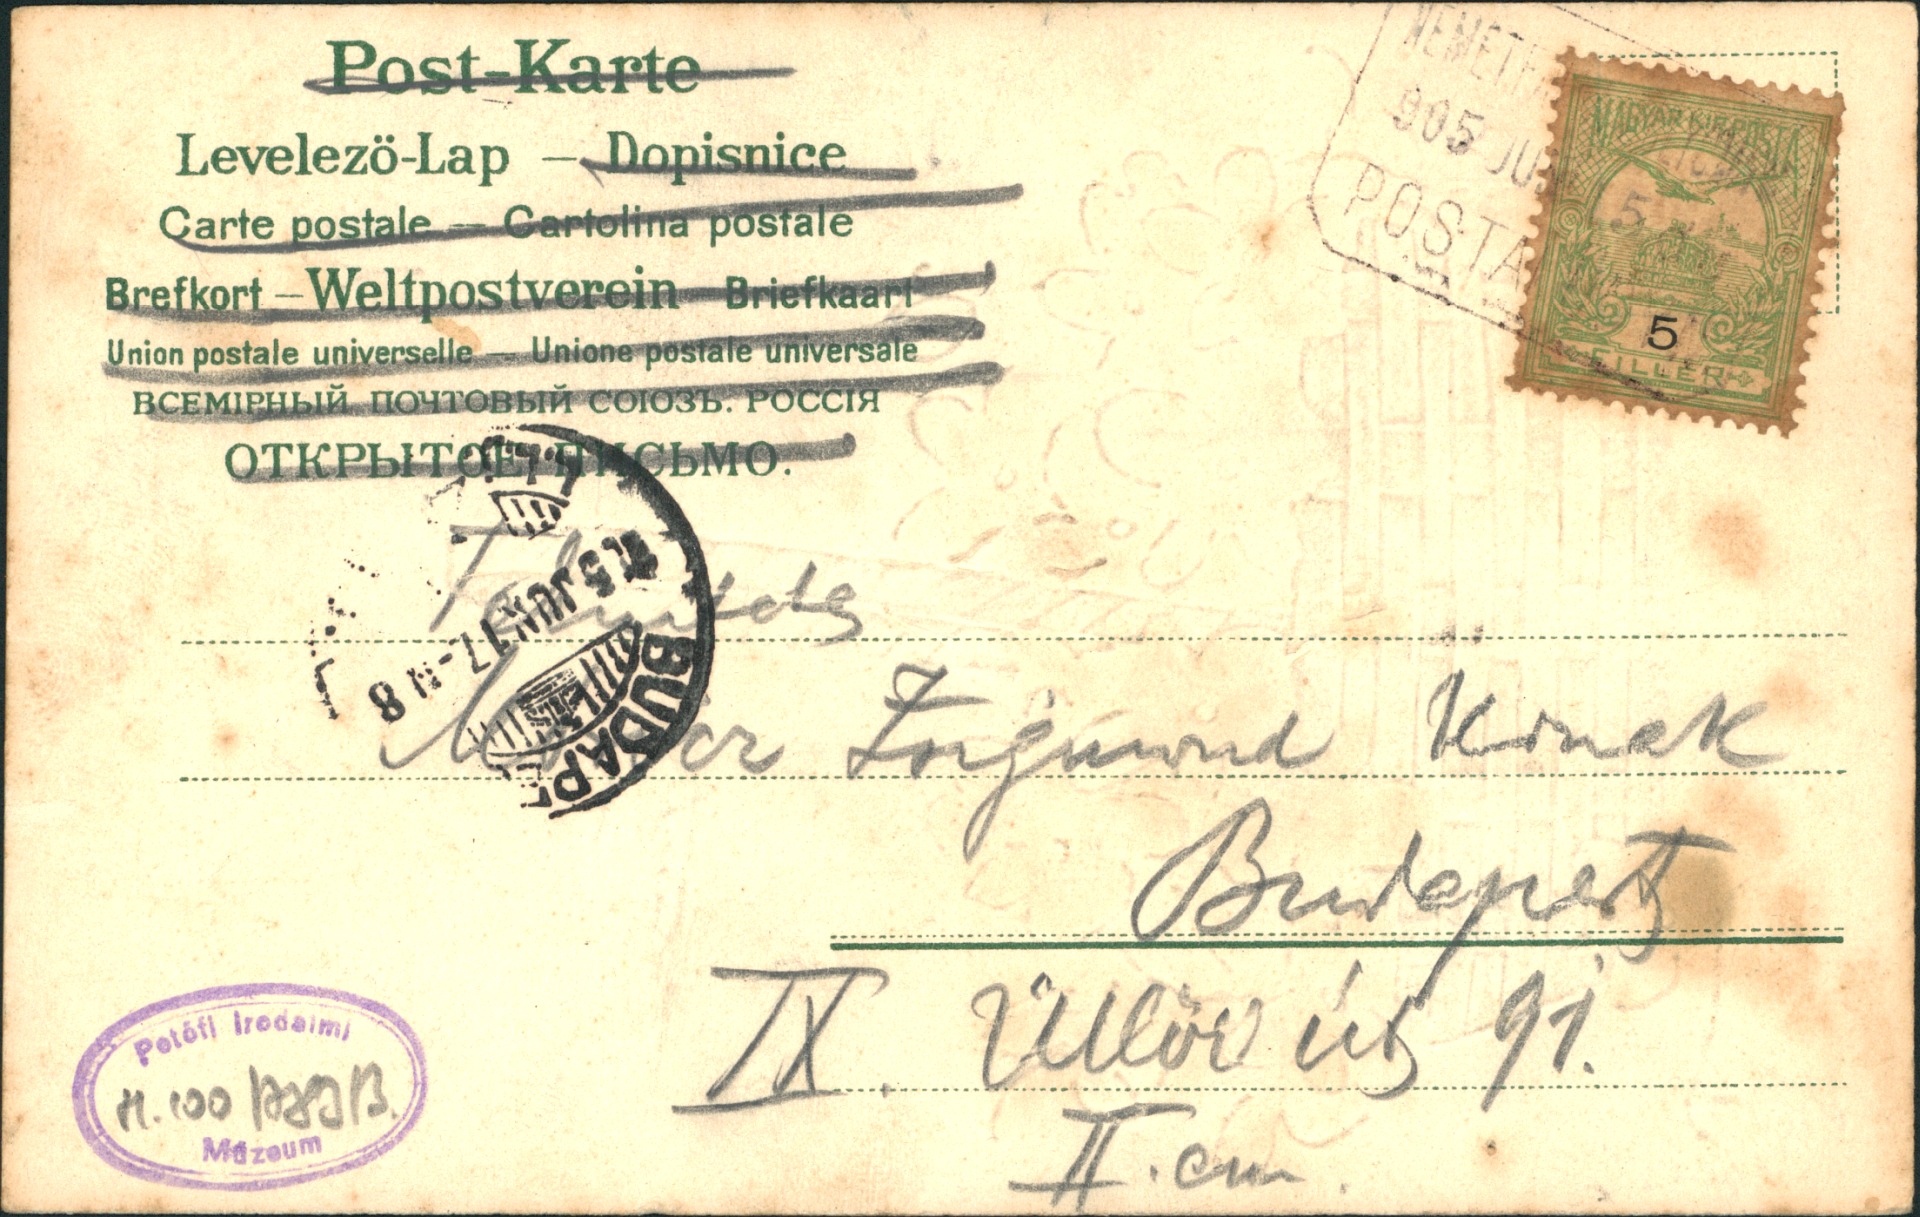 Post-Karte
Levelezö-Lap – Dopisnice
Carte postale – Cartolina postale
Brefkort – Weltpostverein – Briefkaart
Union postale universelle – Unione postale universale
ВСЕМІРНЫЙ ПОЧТОВЫЙ СОЮЗЪ. РОССІЯ
ОТКРЫТОЕ ПИСЬМО.
905 JU
POSTA
MAGYAR KIR. POSTA
5
FILLER
5 JUN 17 - N 8
BUDAPE
Zsigmond
Budapest
IX. Üllői út 91.
II. em.
Petőfi Irodalmi
Múzeum